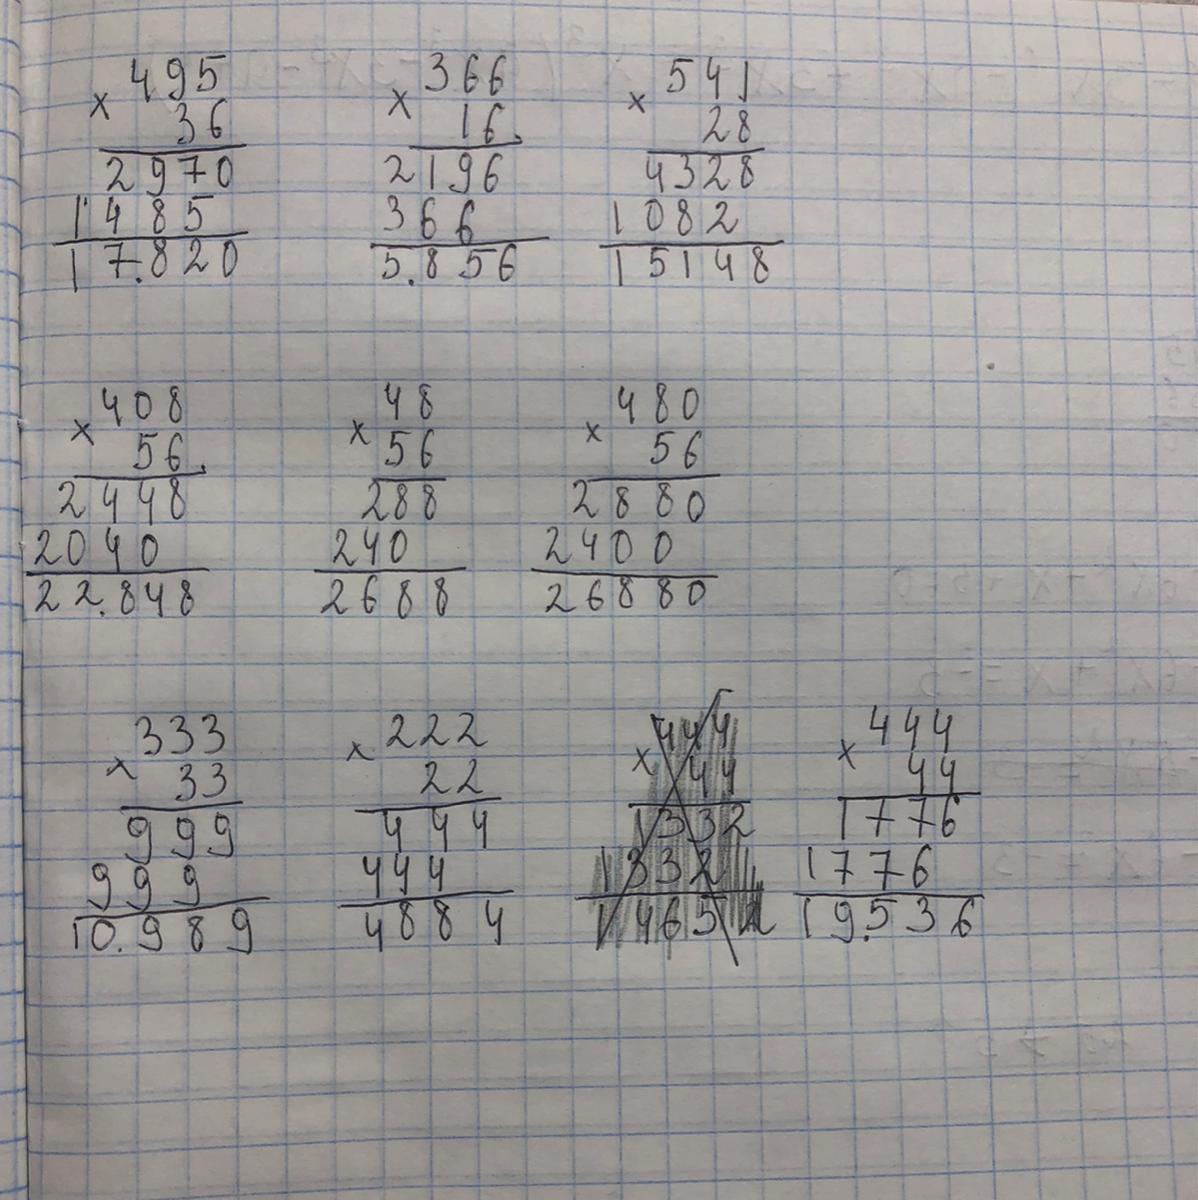 495
× 36
2970
1485
17.820
366
× 16.
2196
366
5.856
541
× 28
4328
1082
15148
408
× 56.
2448
2040
22.848
48
× 56
288
240
2688
480
× 56
2880
2400
26880
333
× 33
999
999
10.989
222
× 22
444
444
4884
444
× 44
1332
1332
444
× 44
1776
1776
19.536